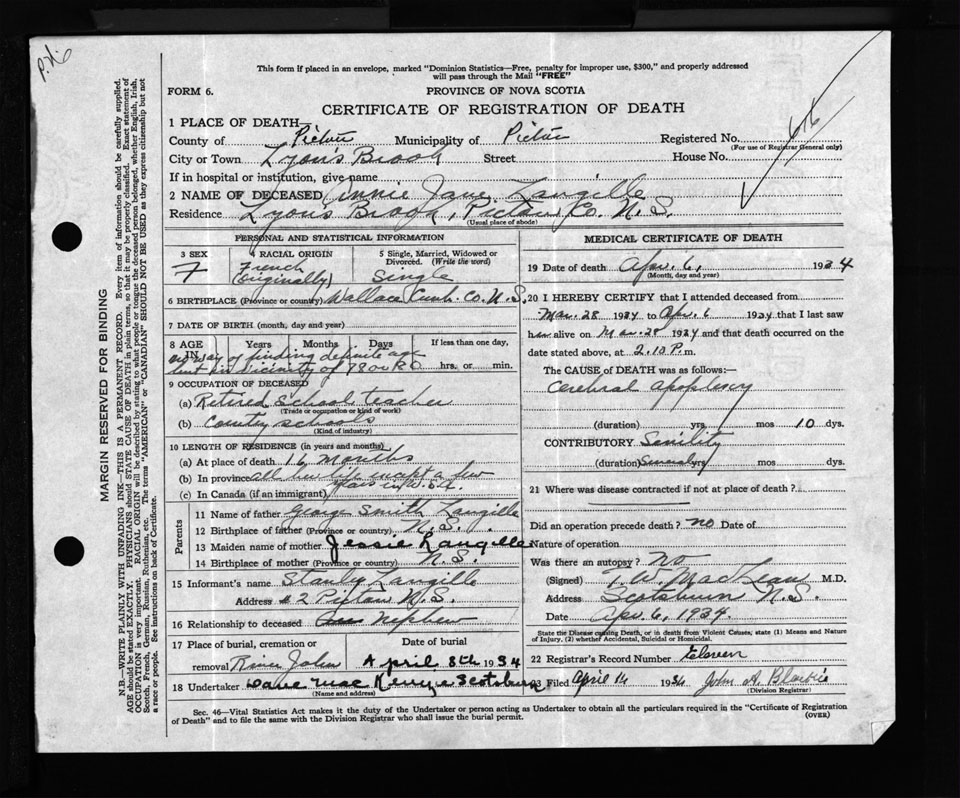 P.N.
This form if placed in an envelope, marked "Dominion Statistics—Free, penalty for improper use, $300," and properly addressed
will pass through the Mail "FREE"
FORM 6.
PROVINCE OF NOVA SCOTIA
CERTIFICATE OF REGISTRATION OF DEATH
1 PLACE OF DEATH—
County of Pictou Municipality of Pictou Registered No.
(For use of Registrar General only)
City or Town Lyon's Brook Street House No.
If in hospital or institution, give name
2 NAME OF DECEASED Annie Jane Langille
Residence Lyons Brook, Pictou Co. N.S.
(Usual place of abode)
PERSONAL AND STATISTICAL INFORMATION
3 SEX
F
4 RACIAL ORIGIN
French
(originally)
5 Single, Married, Widowed or
Divorced. (Write the word)
Single
6 BIRTHPLACE (Province or country) Wallace Cumb. Co. N.S.
7 DATE OF BIRTH (month, day and year)
8 AGE IN Years Months Days If less than one day,
no way of finding definite age
but in vicinity of 78 or 80 hrs. or min.
9 OCCUPATION OF DECEASED
(a) Retired School teacher
(Trade or occupation or kind of work)
(b) Country schools
(Kind of industry)
10 LENGTH OF RESIDENCE (in years and months)
(a) At place of death 16 months
(b) In province all her life except a few
(c) In Canada (if an immigrant) years in U.S.A.
Parents
11 Name of father George Smith Langille
12 Birthplace of father (Province or country) N.S.
13 Maiden name of mother Jessie Langille
14 Birthplace of mother (Province or country) N.S.
15 Informant's name Stanly Langille
Address #2 Pictou N.S.
16 Relationship to deceased Nephew
17 Place of burial, cremation or Date of burial
removal River John April 8th 1934
18 Undertaker Dave MacKenzie Scotsburn
(Name and address)
MEDICAL CERTIFICATE OF DEATH
19 Date of death Apr. 6, 1934
(Month, day and year)
20 I HEREBY CERTIFY that I attended deceased from
Mar. 28 1934 to Apr. 6 1934 that I last saw
her alive on Mar. 28 1934 and that death occurred on the
date stated above, at 2.10 P.m.
The CAUSE of DEATH was as follows:—
Cerebral apoplexy
(duration) yrs. mos 10 dys.
CONTRIBUTORY Senility
(duration) Several yrs mos dys.
21 Where was disease contracted if not at place of death?
Did an operation precede death? no Date of
Nature of operation
Was there an autopsy? No
(Signed) T.W. MacLean M.D.
Address Scotsburn N.S.
Date Apr 6, 1934.
State the Disease causing Death, or in death from Violent Causes, state (1) Means and Nature
of Injury, (2) Whether Accidental, Suicidal or Homicidal.
22 Registrar's Record Number Eleven
23 Filed April 14 1934 John A. Blaikie
(Division Registrar)
Sec. 46—Vital Statistics Act makes it the duty of the Undertaker or person acting as Undertaker to obtain all the particulars required in the "Certificate of Registration
of Death" and to file the same with the Division Registrar who shall issue the burial permit. (OVER)
MARGIN RESERVED FOR BINDING
N.B.—WRITE PLAINLY WITH UNFADING INK—THIS IS A PERMANENT RECORD. Every item of information should be carefully supplied.
AGE should be stated EXACTLY. PHYSICIANS should STATE CAUSE OF DEATH in plain terms, so that it may be properly classified. Exact statement of
OCCUPATION is very important. RACIAL ORIGIN will be described by stating to what people or tongue the deceased person belonged, whether English, Irish,
Scotch, French, German, Russian, Ruthenian, etc. The terms "AMERICAN" or "CANADIAN" SHOULD NOT BE USED as they express citizenship but not
a race or people. See instructions on back of Certificate.